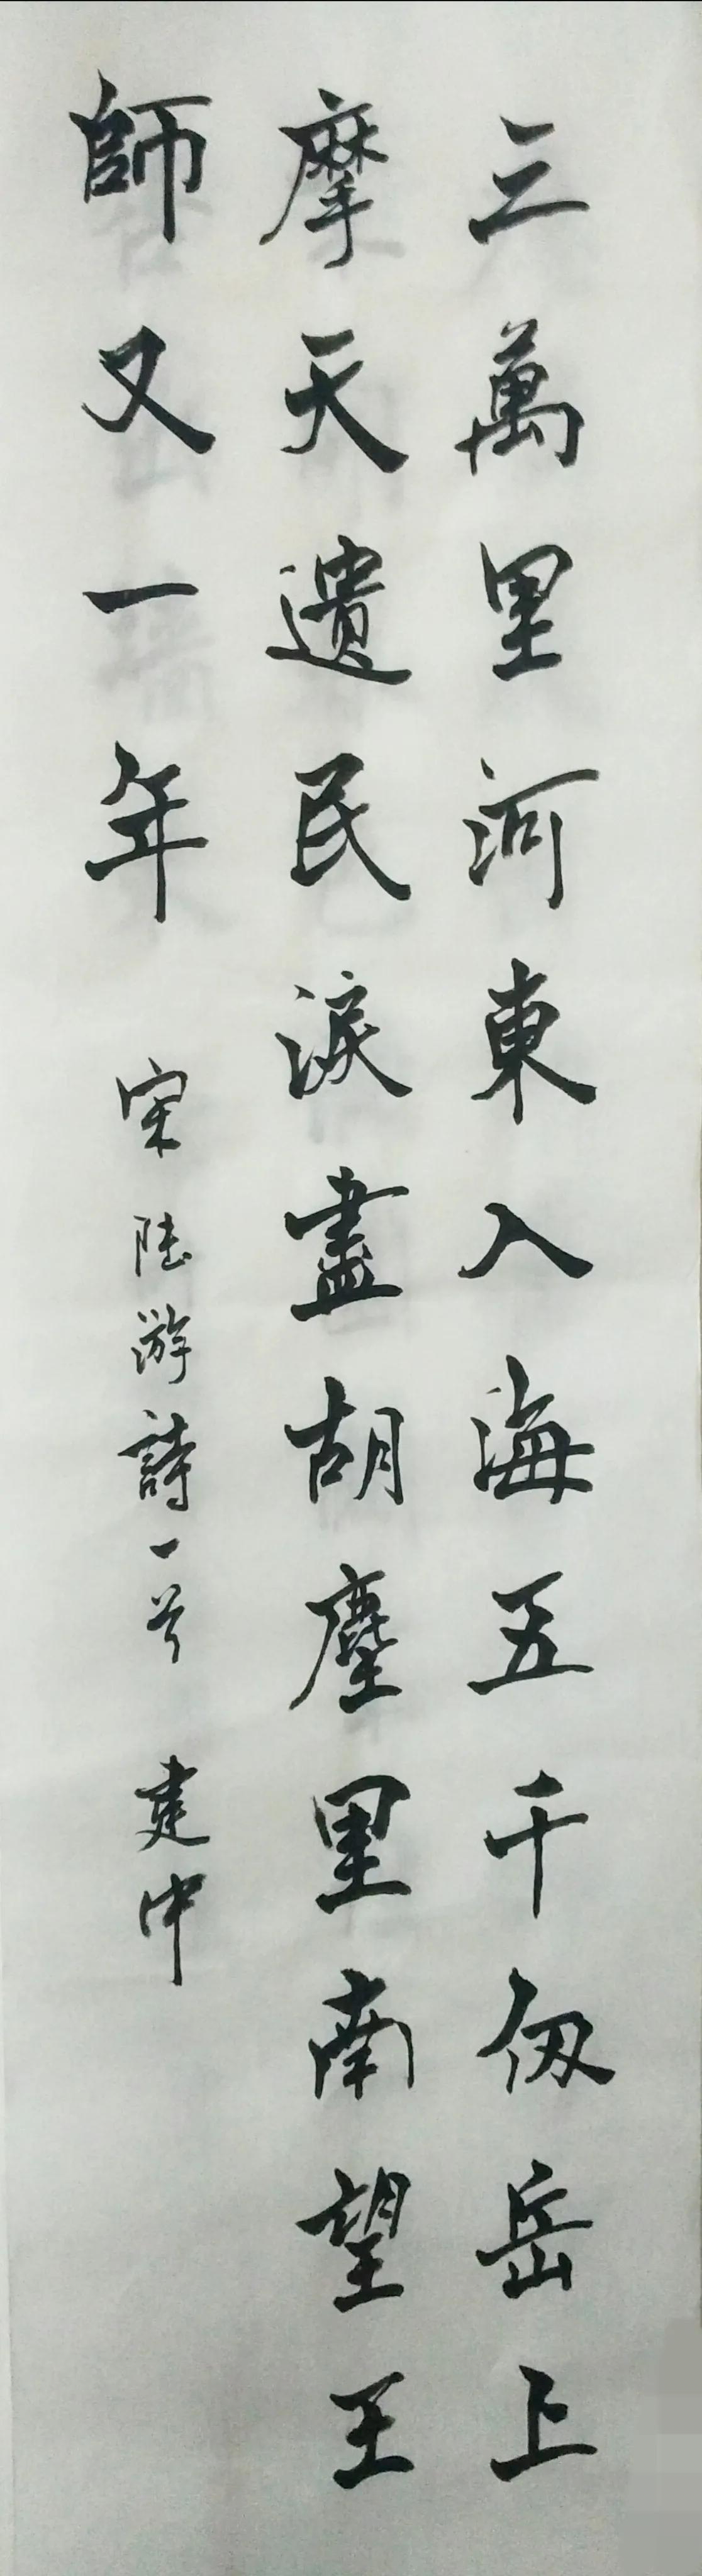 三萬里河東入海五千仭岳上
摩天遺民淚盡胡塵里南望王
師又一年 宋陸游詩一首 建中